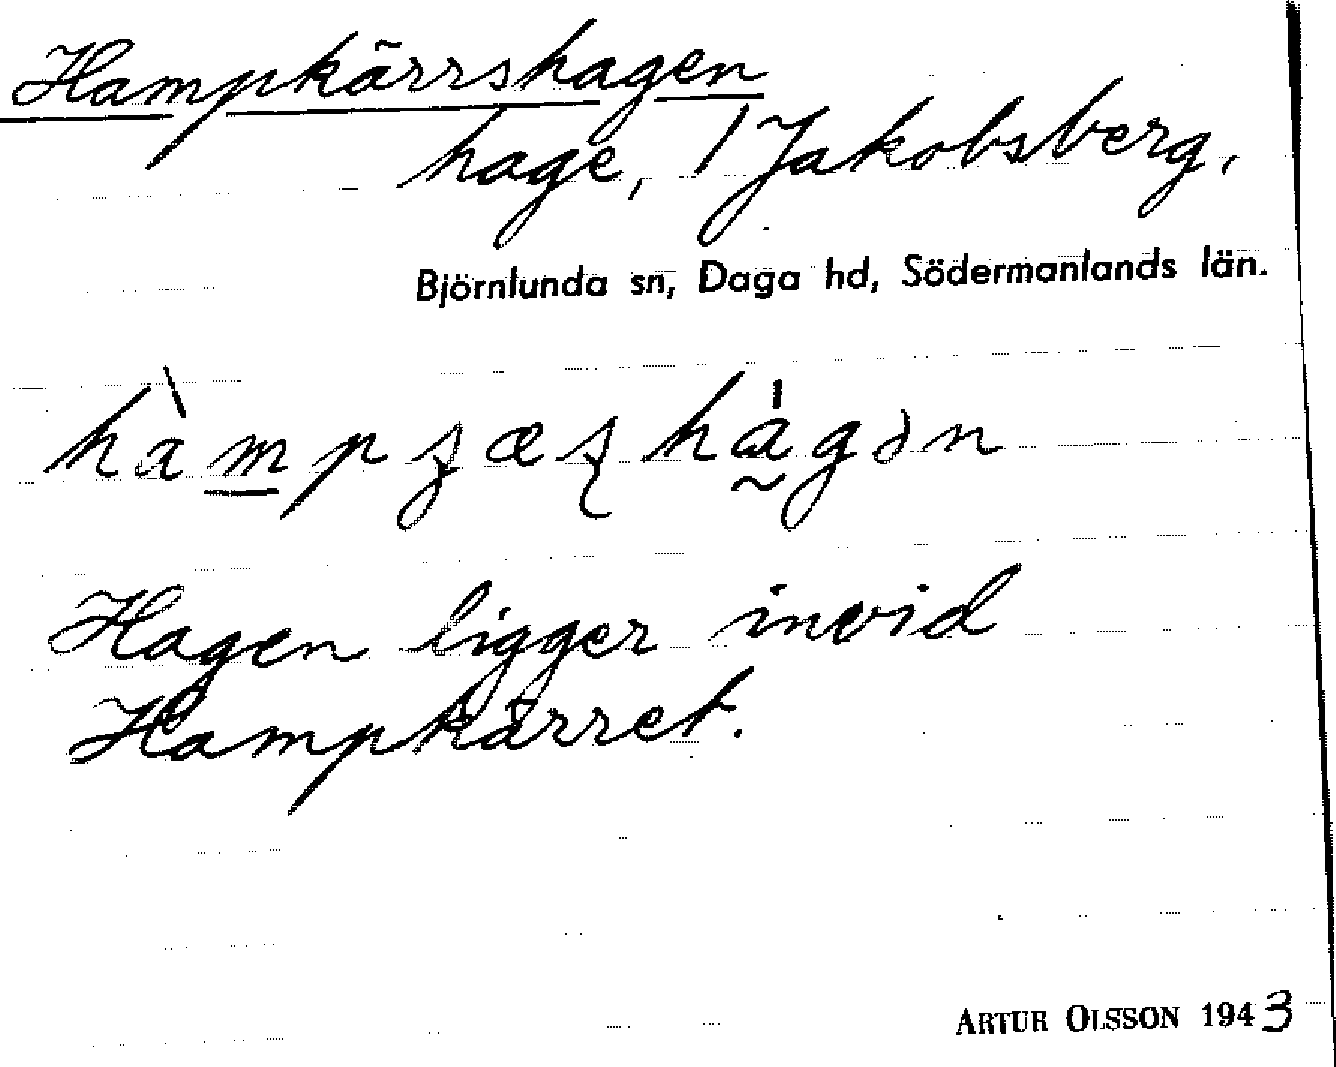 Hampkärrshagen
hage, 1 Jakobsberg,
Björnlunda sn, Daga hd, Södermanlands län.
Hagen ligger invid
Hampkärret.
ARTUR OLSSON 1943